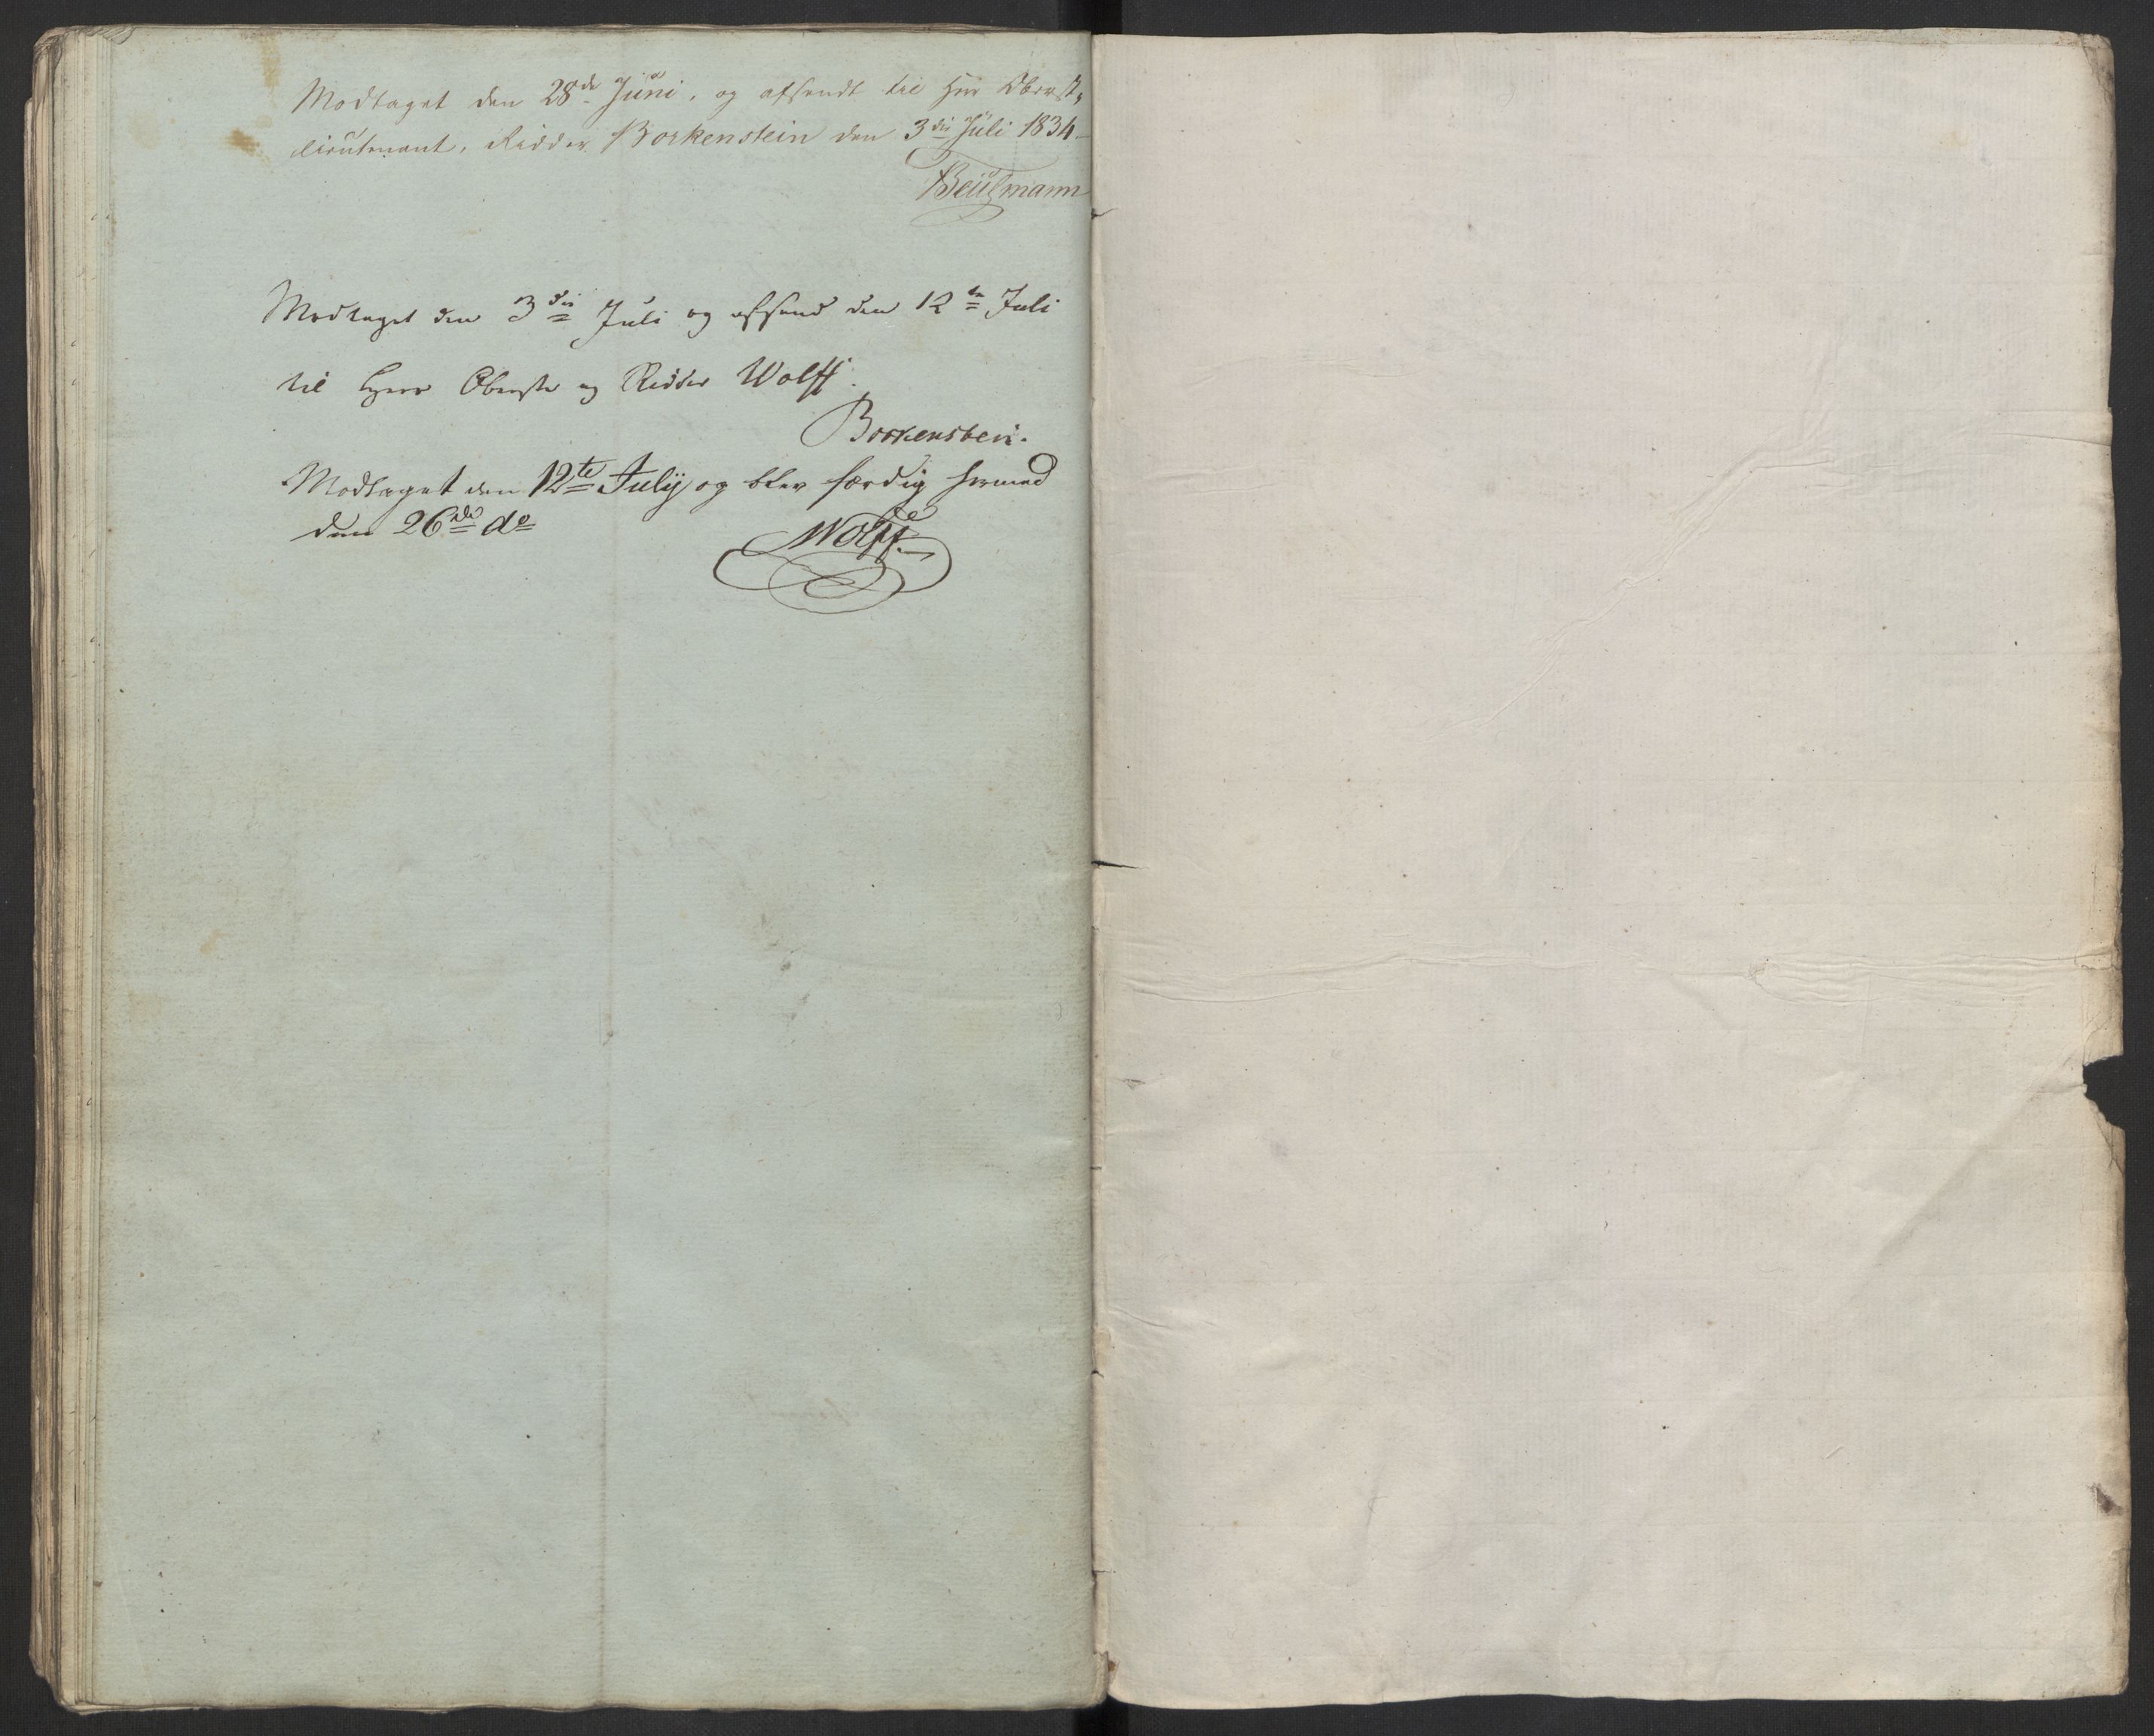 Modtaget den 28de Juni, og afsendt til Herr Oberst-
lieutenant, Ridder Borkenstein den 3die Juli 1834
Beutzmann
Modtaget den 3die Juli og afsend den 12te Juli
til Herr Oberste og Ridder Wolff.
Borkenstein.
Modtaget den 12te July og blev færdig hermed
den 26de do
Wolff